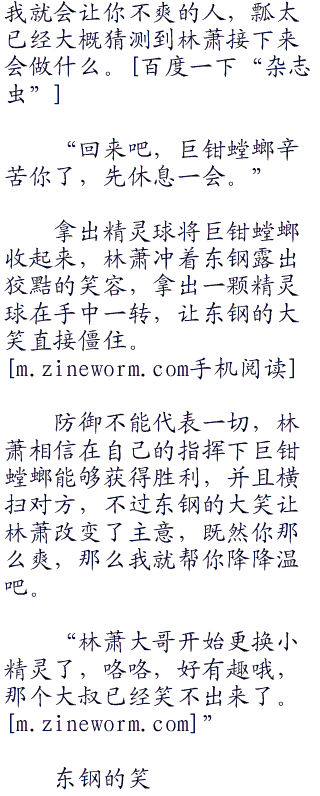 我就会让你不爽的人，瓢太
已经大概猜测到林萧接下来
会做什么。[百度一下“杂志
虫”]
“回来吧，巨钳螳螂辛
苦你了，先休息一会。”
拿出精灵球将巨钳螳螂
收起来，林萧冲着东钢露出
狡黠的笑容，拿出一颗精灵
球在手中一转，让东钢的大
笑直接僵住。
[m.zineworm.com手机阅读]
防御不能代表一切，林
萧相信在自己的指挥下巨钳
螳螂能够获得胜利，并且横
扫对方，不过东钢的大笑让
林萧改变了主意，既然你那
么爽，那么我就帮你降降温
吧。
“林萧大哥开始更换小
精灵了，咯咯，好有趣哦，
那个大叔已经笑不出来了。
[m.zineworm.com]”
东钢的笑